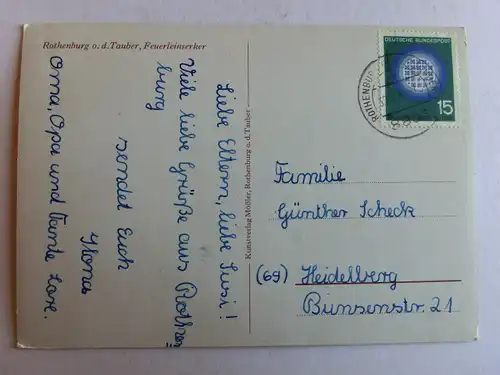 Rothenburg o. d. Tauber, Feuerleinserker
Liebe Eltern, liebe Susi!
Viele liebe Grüße aus Rothen
burg
sendet Euch
Ilona
Oma, Opa und Tante Lore.
Kunstverlag Mößler, Rothenburg o. d. Tauber
DEUTSCHE BUNDESPOST
15
ROTHENBURG
Familie
Günther Scheck
(69) Heidelberg
Bunsenstr. 21